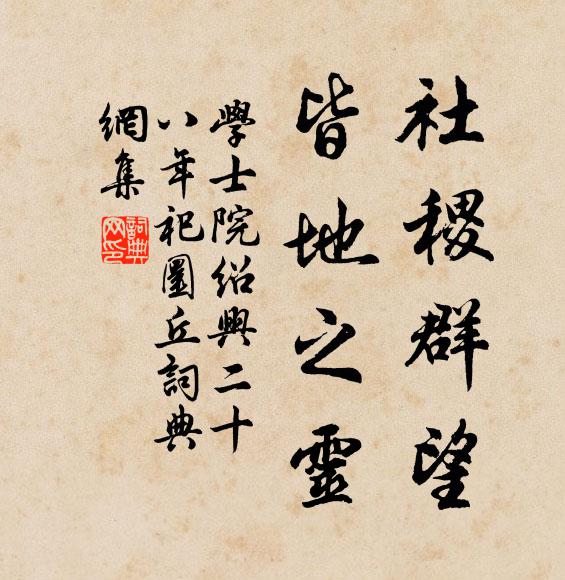 社稷群望
皆地之靈
學士院紹興二十
八年祀圜丘詞典
網集
詞典網印